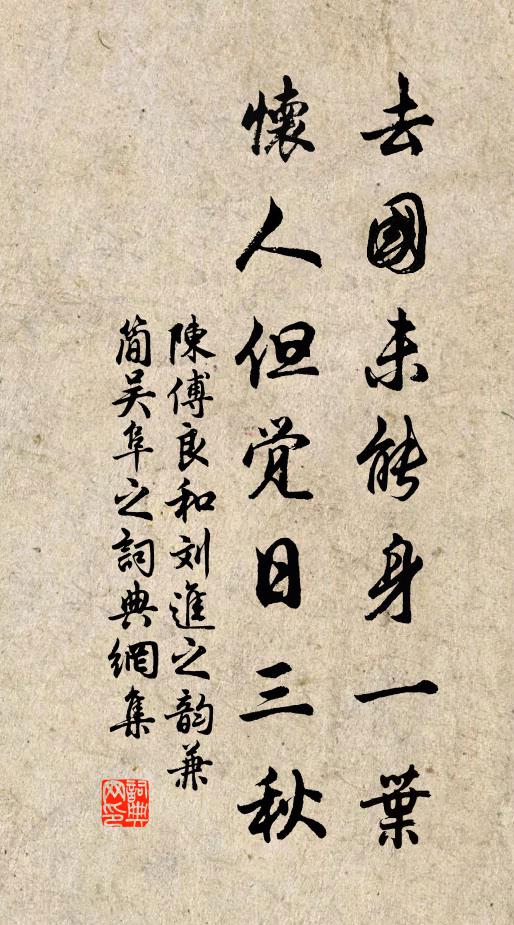 去國未能身一葉
懷人但觉日三秋
陳傅良和刘進之韵兼
简吴阜之詞典網集
詞典網印